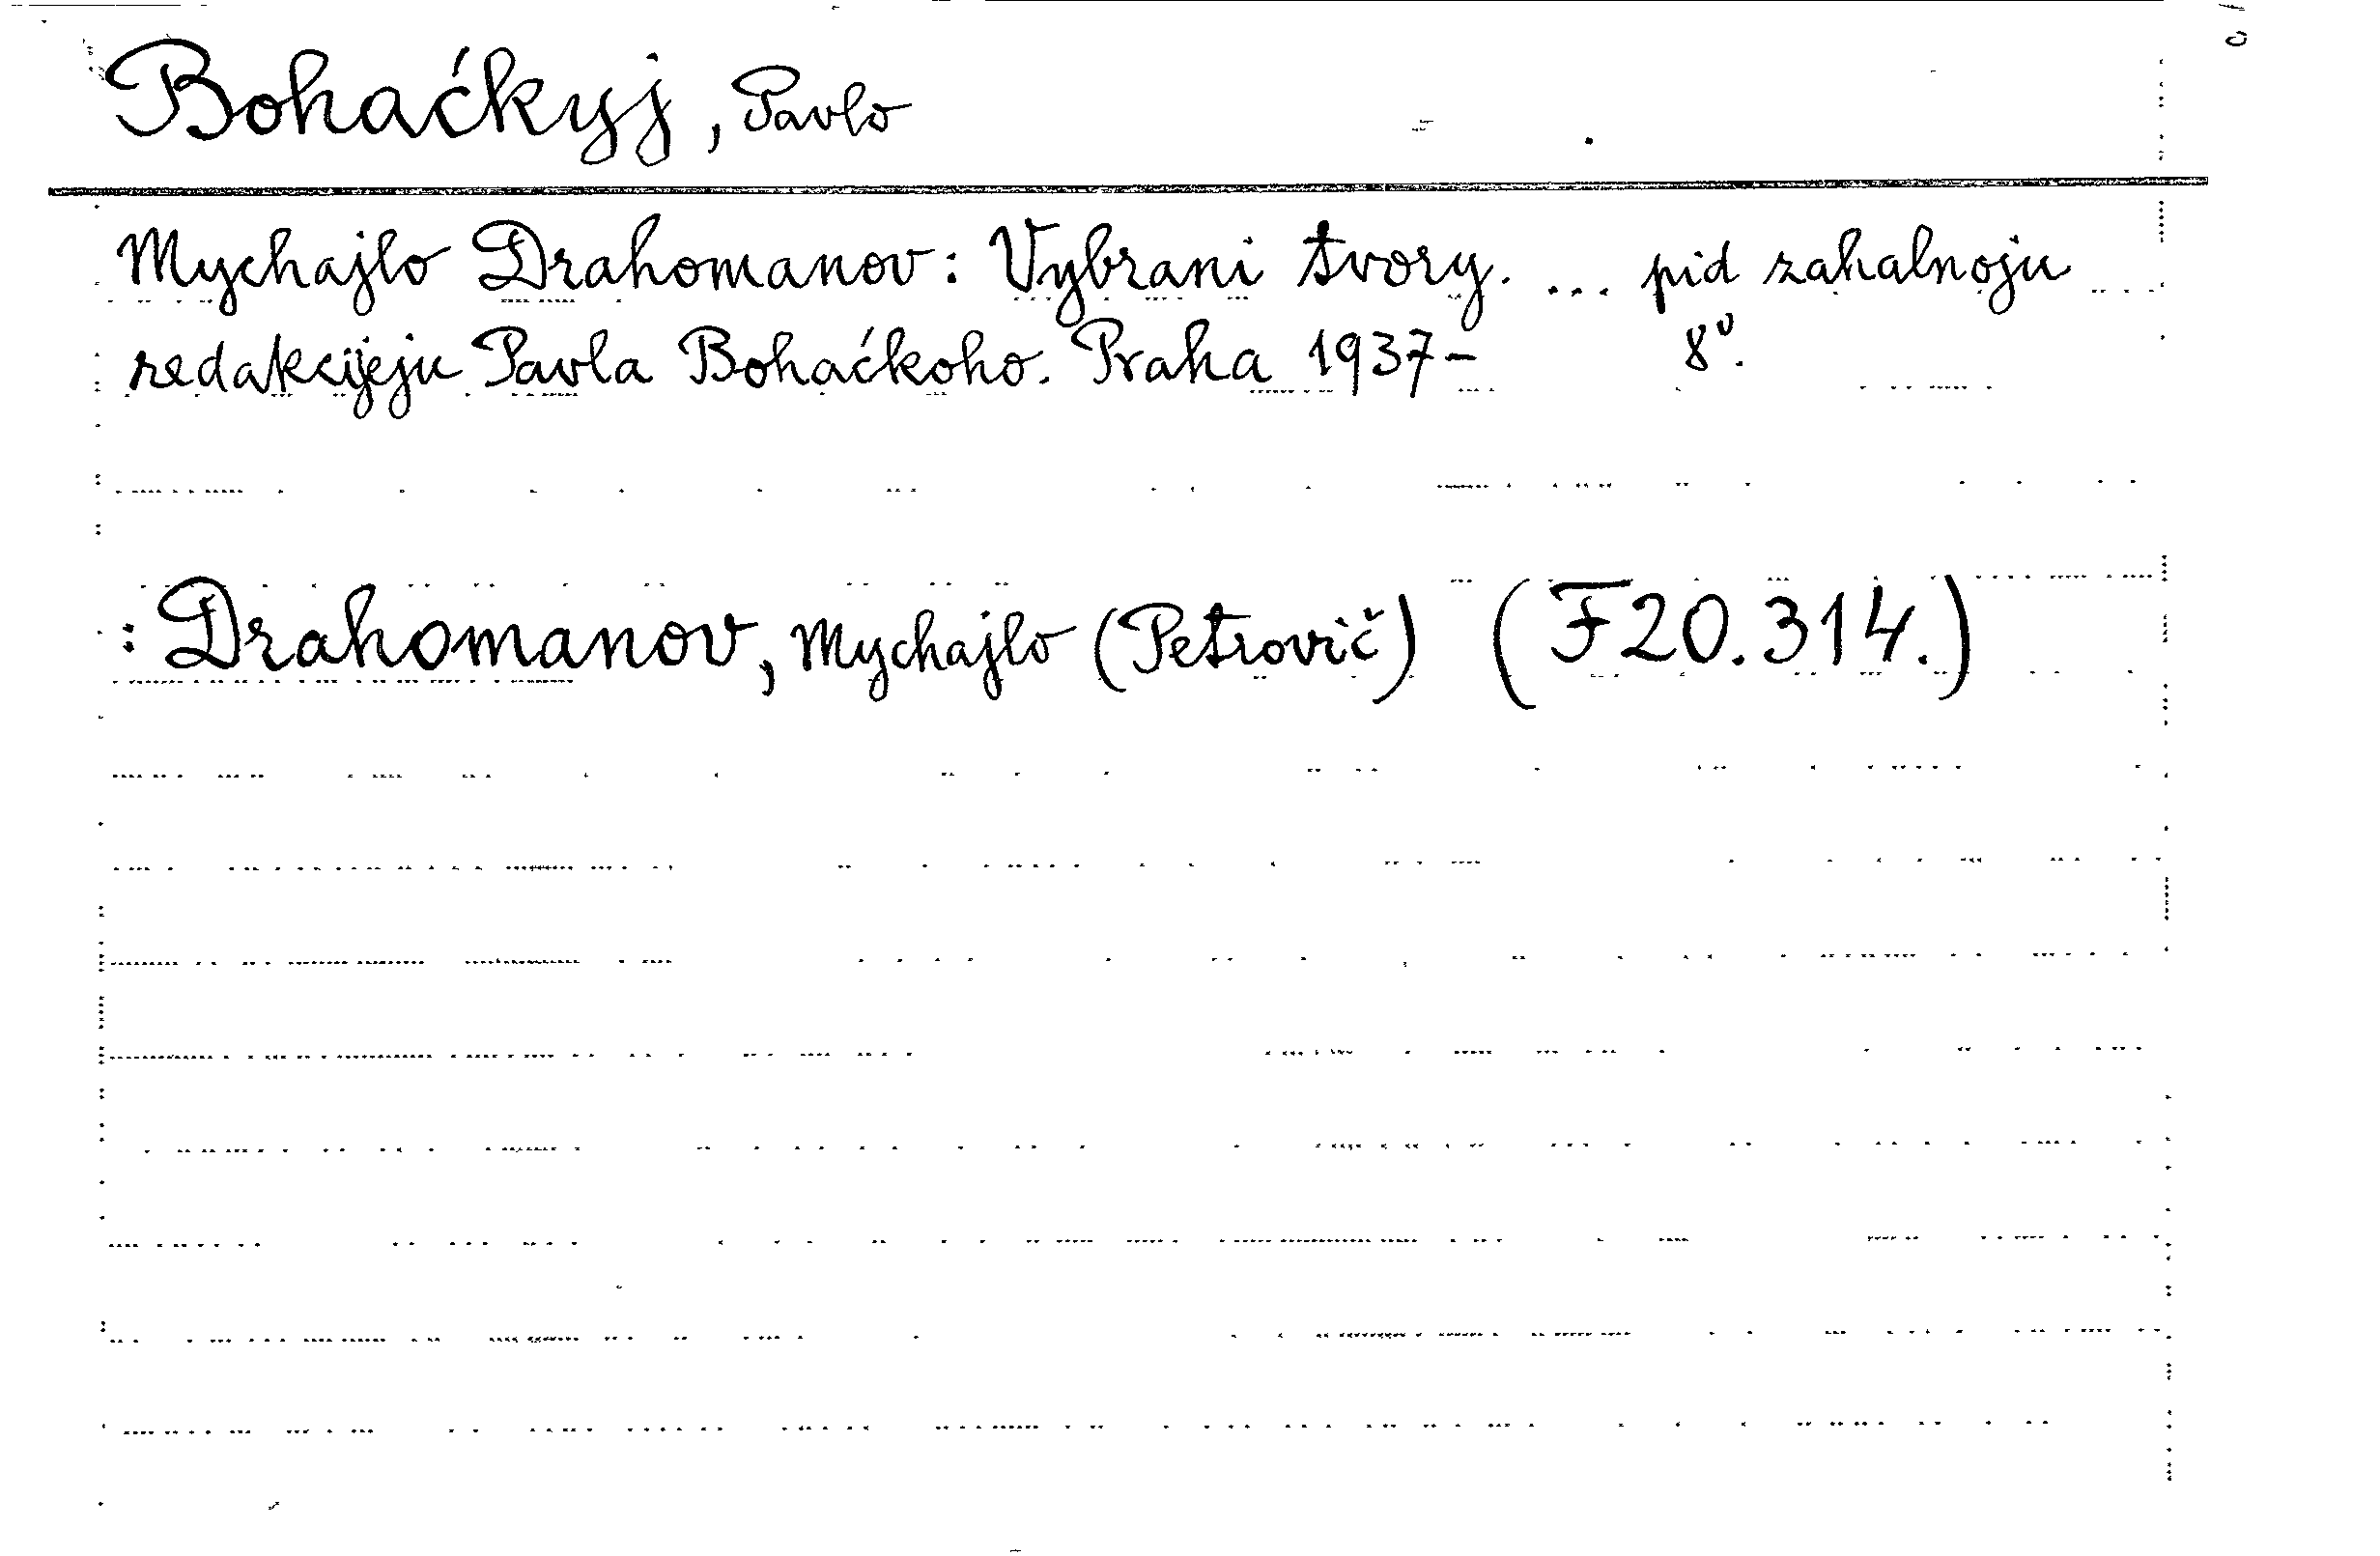 Bohaćkyj, Pavlo
Mychajlo Drahomanov: Vybrani tvory. ... pid zahalnoju
redakcijeju Pavla Bohaćkoho. Praha 1937- 8º.
: Drahomanov, Mychajlo (Petrovič) (F20.314.)